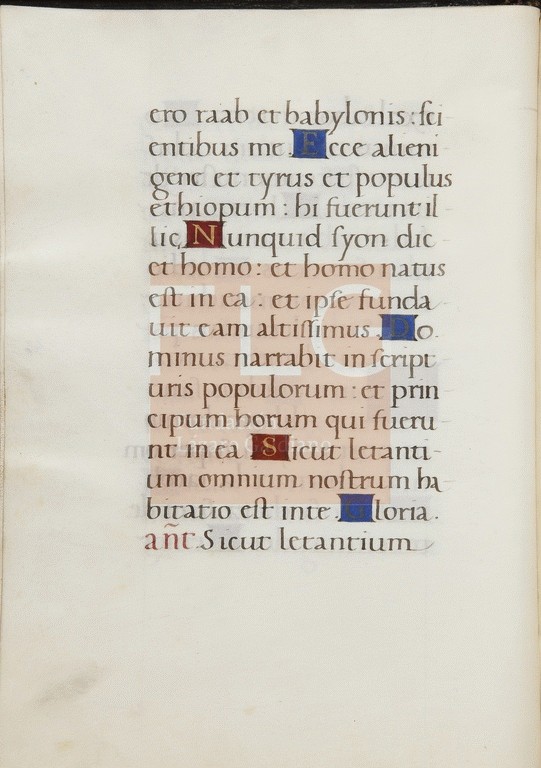 ero raab et babylonis : sci
entibus me. Ecce alieni
gene et tyrus et populus
ethiopum : hi fuerunt il
lic. Nunquid syon dic
et homo : et homo natus
est in ea : et ipse funda
uit eam altissimus. Do
minus narrabit in script
uris populorum : et prin
cipum horum qui fueru
nt in ea. Sicut letanti
um omnium nostrum ha
bitatio est inte. Gloria.
añt. Sicut letantium
FLC